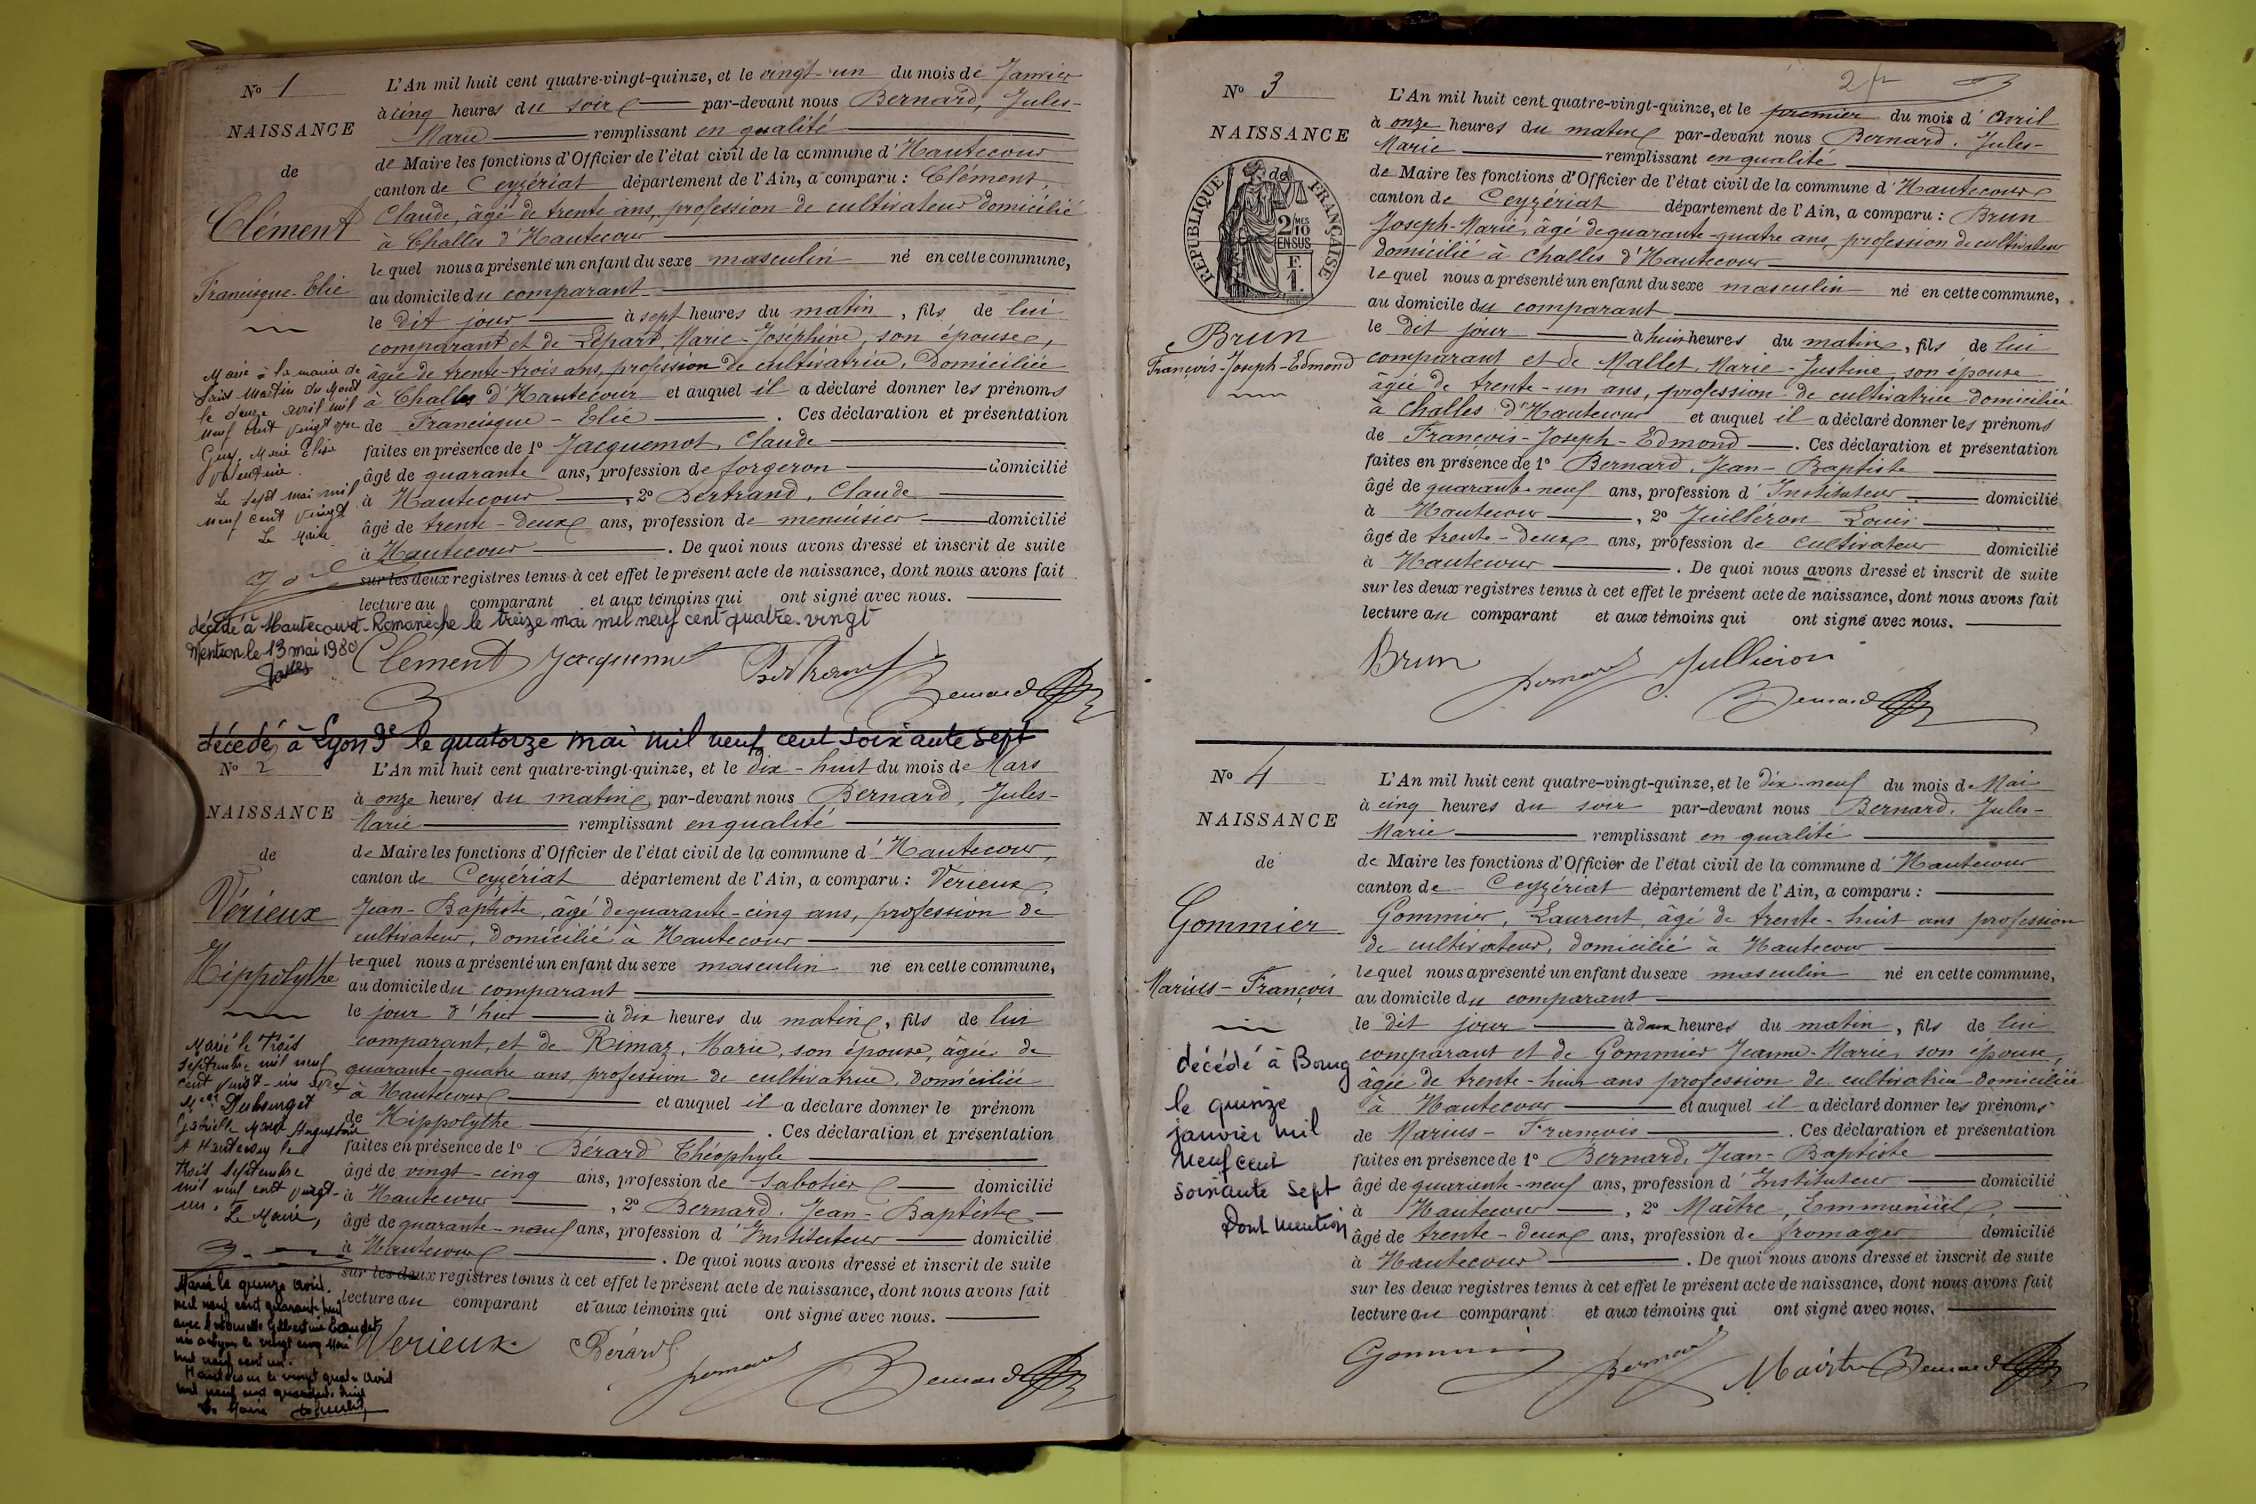 Nº 1
NAISSANCE
de
Clément
Francisque-Elie
L'An mil huit cent quatre-vingt-quinze, et le vingt-un du mois de Janvier
à cinq heures du soir par-devant nous Bernard, Jules-
Marie remplissant en qualité
de Maire les fonctions d'Officier de l'état civil de la commune d'Hautecour
canton de Ceyzériat département de l'Ain, a comparu : Clément,
Claude, âgé de trente ans, profession de cultivateur domicilié
à Challes d'Hautecour
lequel nous a présenté un enfant du sexe masculin né en cette commune,
au domicile du comparant
le dit jour à sept heures du matin, fils de lui
comparant et de Lépart, Marie-Joséphine, son épouse,
âgée de trente-trois ans, profession de cultivatrice, domiciliée
à Challes d'Hautecour et auquel il a déclaré donner les prénoms
de Francisque-Elie. Ces déclaration et présentation
faites en présence de 1º Jacquemot, Claude
âgé de quarante ans, profession de forgeron domicilié
à Hautecour, 2º Bertrand, Claude
âgé de trente-deux ans, profession de menuisier domicilié
à Hautecour. De quoi nous avons dressé et inscrit de suite
sur les deux registres tenus à cet effet le présent acte de naissance, dont nous avons fait
lecture au comparant et aux témoins qui ont signé avec nous.
Marié à la mairie de
Saint Martin du Mont
le douze avril mil
neuf cent vingt
Marie
Le sept mai mil
neuf cent vingt
Le Maire
décédé à Hautecourt-Romanèche le treize mai mil neuf cent quatre-vingt
Mention le 13 mai 1980
Clement Jacquemot Bertrand
Bernard
décédé à Lyon 3e le quatorze mai mil neuf cent soixante sept
Nº 2
NAISSANCE
de
Vérieux
Hippolythe
L'An mil huit cent quatre-vingt-quinze, et le dix-huit du mois de Mars
à onze heures du matin, par-devant nous Bernard, Jules-
Marie remplissant en qualité
de Maire les fonctions d'Officier de l'état civil de la commune d'Hautecour,
canton de Ceyzériat département de l'Ain, a comparu : Vérieux,
Jean-Baptiste, âgé de quarante-cinq ans, profession de
cultivateur, domicilié à Hautecour
lequel nous a présenté un enfant du sexe masculin né en cette commune,
au domicile du comparant
le jour d'hui à dix heures du matin, fils de lui
comparant, et de Rimaz, Marie, son épouse, âgée de
quarante-quatre ans, profession de cultivatrice, domiciliée
à Hautecour et auquel il a déclaré donner le prénom
de Hippolythe. Ces déclaration et présentation
faites en présence de 1º Bérard Théophyle
âgé de vingt-cinq ans, profession de sabotier domicilié
à Hautecour, 2º Bernard, Jean-Baptiste
âgé de quarante-neuf ans, profession d'Instituteur domicilié
à Hautecour. De quoi nous avons dressé et inscrit de suite
sur les deux registres tenus à cet effet le présent acte de naissance, dont nous avons fait
lecture au comparant et aux témoins qui ont signé avec nous.
Marié le trois
septembre mil neuf
cent vingt-un avec
Melle Dubourget
A Hautecour le
trois septembre
mil neuf cent vingt-
un. Le Maire,
Marié le quinze avril
mil neuf cent quarante huit
avec
née à Lyon le vingt cinq Mai
mil neuf cent un.
Hautecour le vingt quatre avril
mil neuf cent quarante huit
Le Maire
Verieux Bérard
Bernard Bernard
2
Nº 3
NAISSANCE
de
RÉPUBLIQUE FRANÇAISE
2 MES
10
EN SUS
F.
1.
Brun
François-Joseph-Edmond
L'An mil huit cent quatre-vingt-quinze, et le premier du mois d'Avril
à onze heures du matin par-devant nous Bernard, Jules-
Marie remplissant en qualité
de Maire les fonctions d'Officier de l'état civil de la commune d'Hautecour
canton de Ceyzériat département de l'Ain, a comparu : Brun
Joseph-Marie, âgé de quarante-quatre ans, profession de cultivateur
domicilié à Challes d'Hautecour
lequel nous a présenté un enfant du sexe masculin né en cette commune,
au domicile du comparant
le dit jour à huit heures du matin, fils de lui
comparant et de Mallet, Marie-Justine, son épouse
âgée de trente-un ans, profession de cultivatrice domiciliée
à Challes d'Hautecour et auquel il a déclaré donner les prénoms
de François-Joseph-Edmond. Ces déclaration et présentation
faites en présence de 1º Bernard, Jean-Baptiste
âgé de quarante-neuf ans, profession d'Instituteur domicilié
à Hautecour, 2º Juilléron Louis
âgé de trente-deux ans, profession de cultivateur domicilié
à Hautecour. De quoi nous avons dressé et inscrit de suite
sur les deux registres tenus à cet effet le présent acte de naissance, dont nous avons fait
lecture au comparant et aux témoins qui ont signé avec nous.
Brun Bernard Jullieron
Bernard
Nº 4
NAISSANCE
de
Gommier
Marius-François
L'An mil huit cent quatre-vingt-quinze, et le dix-neuf du mois de Mai
à cinq heures du soir par-devant nous Bernard, Jules-
Marie remplissant en qualité
de Maire les fonctions d'Officier de l'état civil de la commune d'Hautecour
canton de Ceyzériat département de l'Ain, a comparu :
Gommier, Laurent, âgé de trente-huit ans profession
de cultivateur, domicilié à Hautecour
lequel nous a présenté un enfant du sexe masculin né en cette commune,
au domicile du comparant
le dit jour à deux heures du matin, fils de lui
comparant et de Gommier Jeanne-Marie, son épouse,
âgée de trente-huit ans profession de cultivatrice domiciliée
à Hautecour et auquel il a déclaré donner les prénoms
de Marius-François. Ces déclaration et présentation
faites en présence de 1º Bernard, Jean-Baptiste
âgé de quarante-neuf ans, profession d'Instituteur domicilié
à Hautecour, 2º Maître, Emmanuel,
âgé de trente-deux ans, profession de fromager domicilié
à Hautecour. De quoi nous avons dressé et inscrit de suite
sur les deux registres tenus à cet effet le présent acte de naissance, dont nous avons fait
lecture au comparant et aux témoins qui ont signé avec nous.
décédé à Bourg
le quinze
janvier mil
neuf cent
soixante sept
Dont mention
Gommier Bernard Maitre Bernard